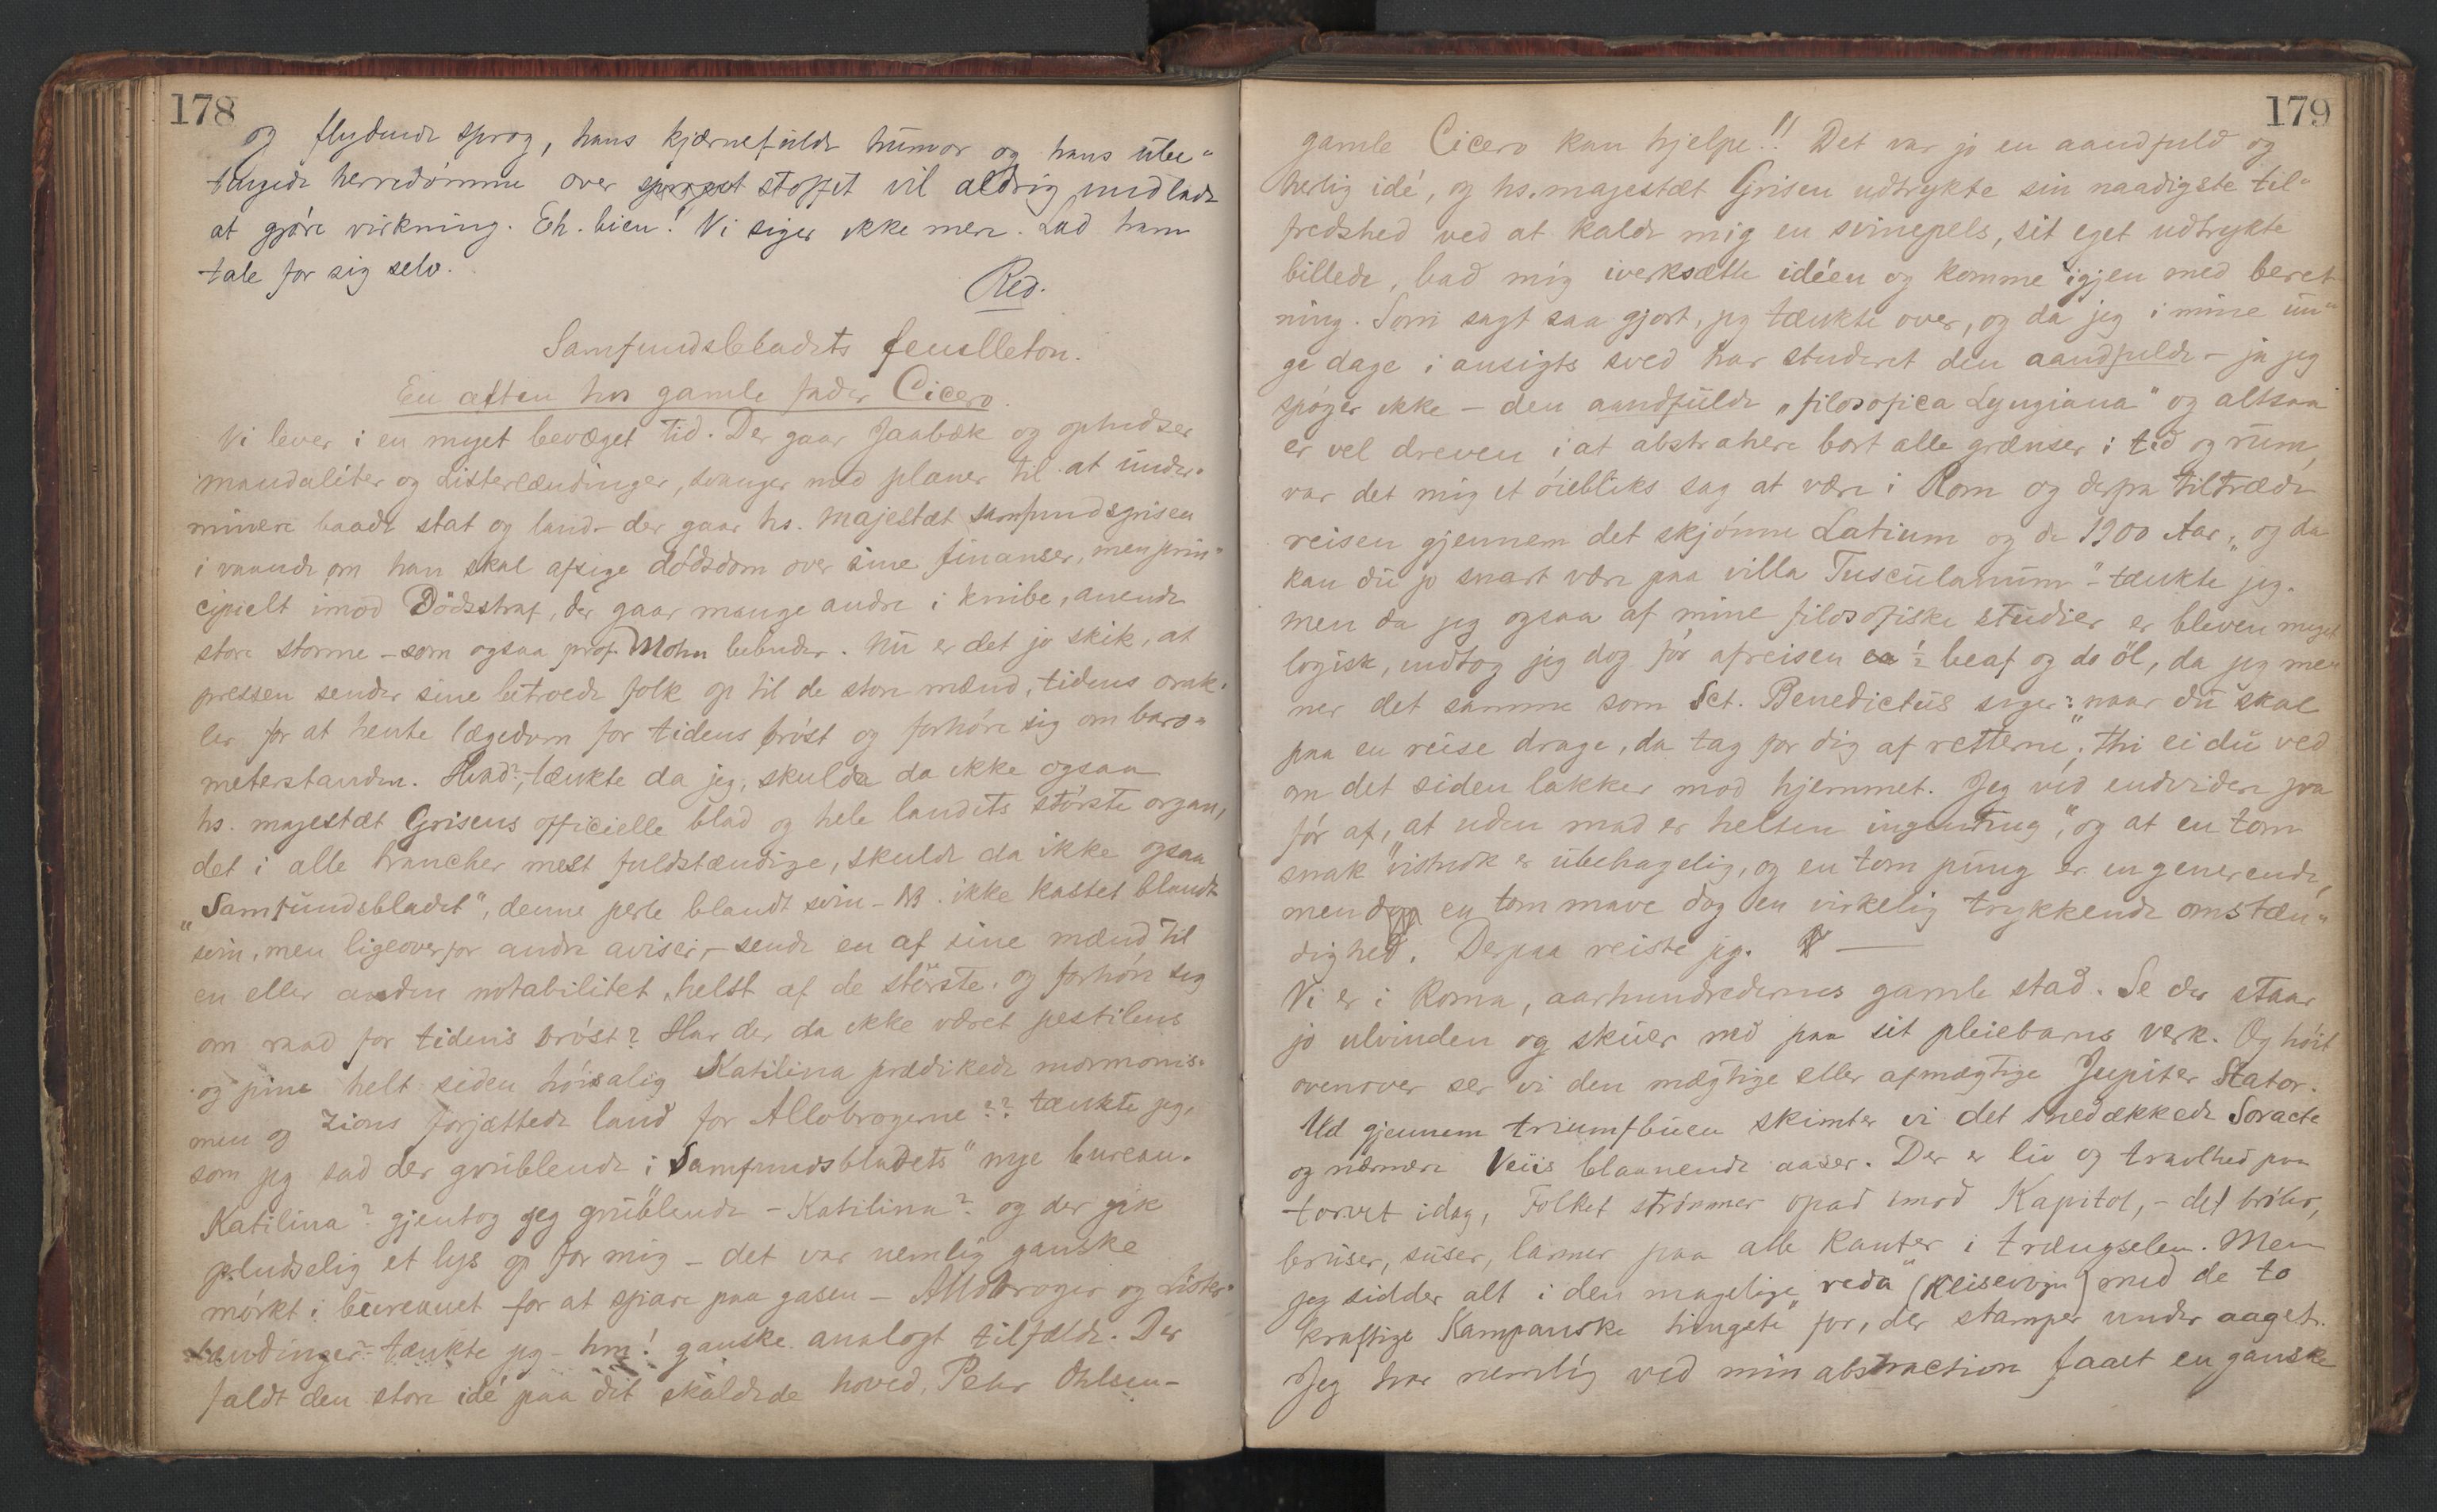 178
og flydende sprog, hans kjærnefulde humor og hans ube-
tingede herredömme over sproget stoffet vil aldrig undlade
at gjöre virkning. Eh. bien! Vi siger ikke mere. Lad ham
tale for sig selv.
Red.
Samfundsbladets feuilleton.
En aften hos gamle fader Cicero.
Vi lever i en meget bevæget tid. Der gaar Jaabæk og ophidser
mandaliter og Listerlændinger, svanger med planer til at under-
minere baade stat og land - der gaar hs. majestæt samfundsgrisen
i vaande om han skal afsige dödsdom over sine finanser, men prin-
cipielt imod Dödsstraf, der gaar mange andre i knibe, anende
store storme - som ogsaa prof. Mohn bebuder. Nu er det jo skik, at
pressen sender sine betroede folk op til de store mænd, tidens orak-
ler for at hente lægedom for tidens bröst og forhöre sig om baro-
meterstanden. Hvad?, tænkte da jeg, skulde da ikke ogsaa
hs. majestæt Grisens officielle blad og hele landets störste organ,
det i alle brancher mest fuldstændige, skulde da ikke ogsaa
"Samfundsbladet", denne perle blandt svin - NB. ikke kastet blandt
svin, men ligeoverfor andre aviser, - sende en af sine mænd til
en eller anden notabilitet, helst af de störste, og forhöre sig
om raad for tidens bröst? Har der da ikke været pestilens
og pine helt siden höisalig Katilina prædikede mormonis-
men og Zions forjættede land for Allobrogerne?? tænkte jeg,
som jeg sad der grublende i "Samfundsbladets" nye bureau.
Katilina? gjentog jeg grublende - Katilina? og der gik
pludselig et lys op for mig - det var nemlig ganske
mörkt i bureauet for at spare paa gasen - Allobroger og Lister-
lændinger - tænkte jeg - hm! ganske analogt tilfælde. Der
faldt den store idé paa dit skaldede hoved, Peter Ohlsen -
179
gamle Cicero kan hjelpe!! Det var jo en aandfuld og
herlig idé, og hs. majestæt Grisen udtrykte sin naadigste til-
fredshed ved at kalde mig en svinepels, sit eget udtrykte
billede, bad mig iverksætte idéen og komme igjen med beret-
ning. Som sagt saa gjort, jeg tænkte over, og da jeg i mine un-
ge dage i ansigts sved har studeret den aandfulde - ja jeg
spöger ikke - den aandfulde "filosofica Lyngiana" og altsaa
er vel dreven i at abstrahere bort alle grænser i tid og rum,
var det mig et öiebliks sag at være i Rom og derpa tiltræde
reisen gjennem det skjönne Latium og de 1900 Aar, "og da
kan du jo snart være paa villa Tusculanum" - tænkte jeg.
Men da jeg ogsaa af mine filosofiske studier er bleven meget
logisk, indtog jeg dog för afreisen en ½ beaf og do öl, da jeg me-
ner det samme som Sct. Benedictus siger: naar du skal
paa en reise drage, da tag for dig af retterne, thi ei du ved
om det siden lakker mod hjemmet. Jeg ved endvidere fra
för af, at uden mad er helten ingenting", og at en tom
snak vistnok er ubehagelig, og en tom pung er en generende,
men en tom mave dog en virkelig trykkende omstæn-
dighed. Derpaa reiste jeg. —
Vi er i Roma, aarhundredernes gamle stad. Se der staar
jo ulvinden og skuer ned paa sit pleiebarns verk. Og höit
ovenover ser vi den mægtige eller afmægtige Jupiter Stator.
Ud gjennem triumfbuen skimter vi det snedækkede Soracte
og nærmere Veiis blaanende aaser. Der er liv og travlhed paa
torvet idag, Folket strömmer opad imod Kapitol, - det bröler,
bruser, suser, larmer paa alle kanter i trængselen. Men
jeg sidder alt i den magelige "reda" (Reisevogn) med de to
kraftige Kampanske hingste for, der stamper under aaget.
Jeg har nemlig ved min abstraction faaet en ganske